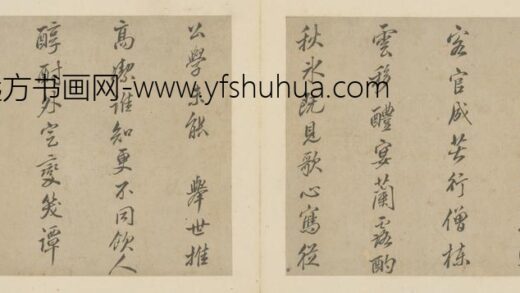 官成苦行僧棟
雲移醴宴蘭露酌
秋氷既見歌心寫從
公學未能 舉世推
高潔誰知更不同飲人
醇酎外定變笑譚
方书画网-www.yfshuhua.com